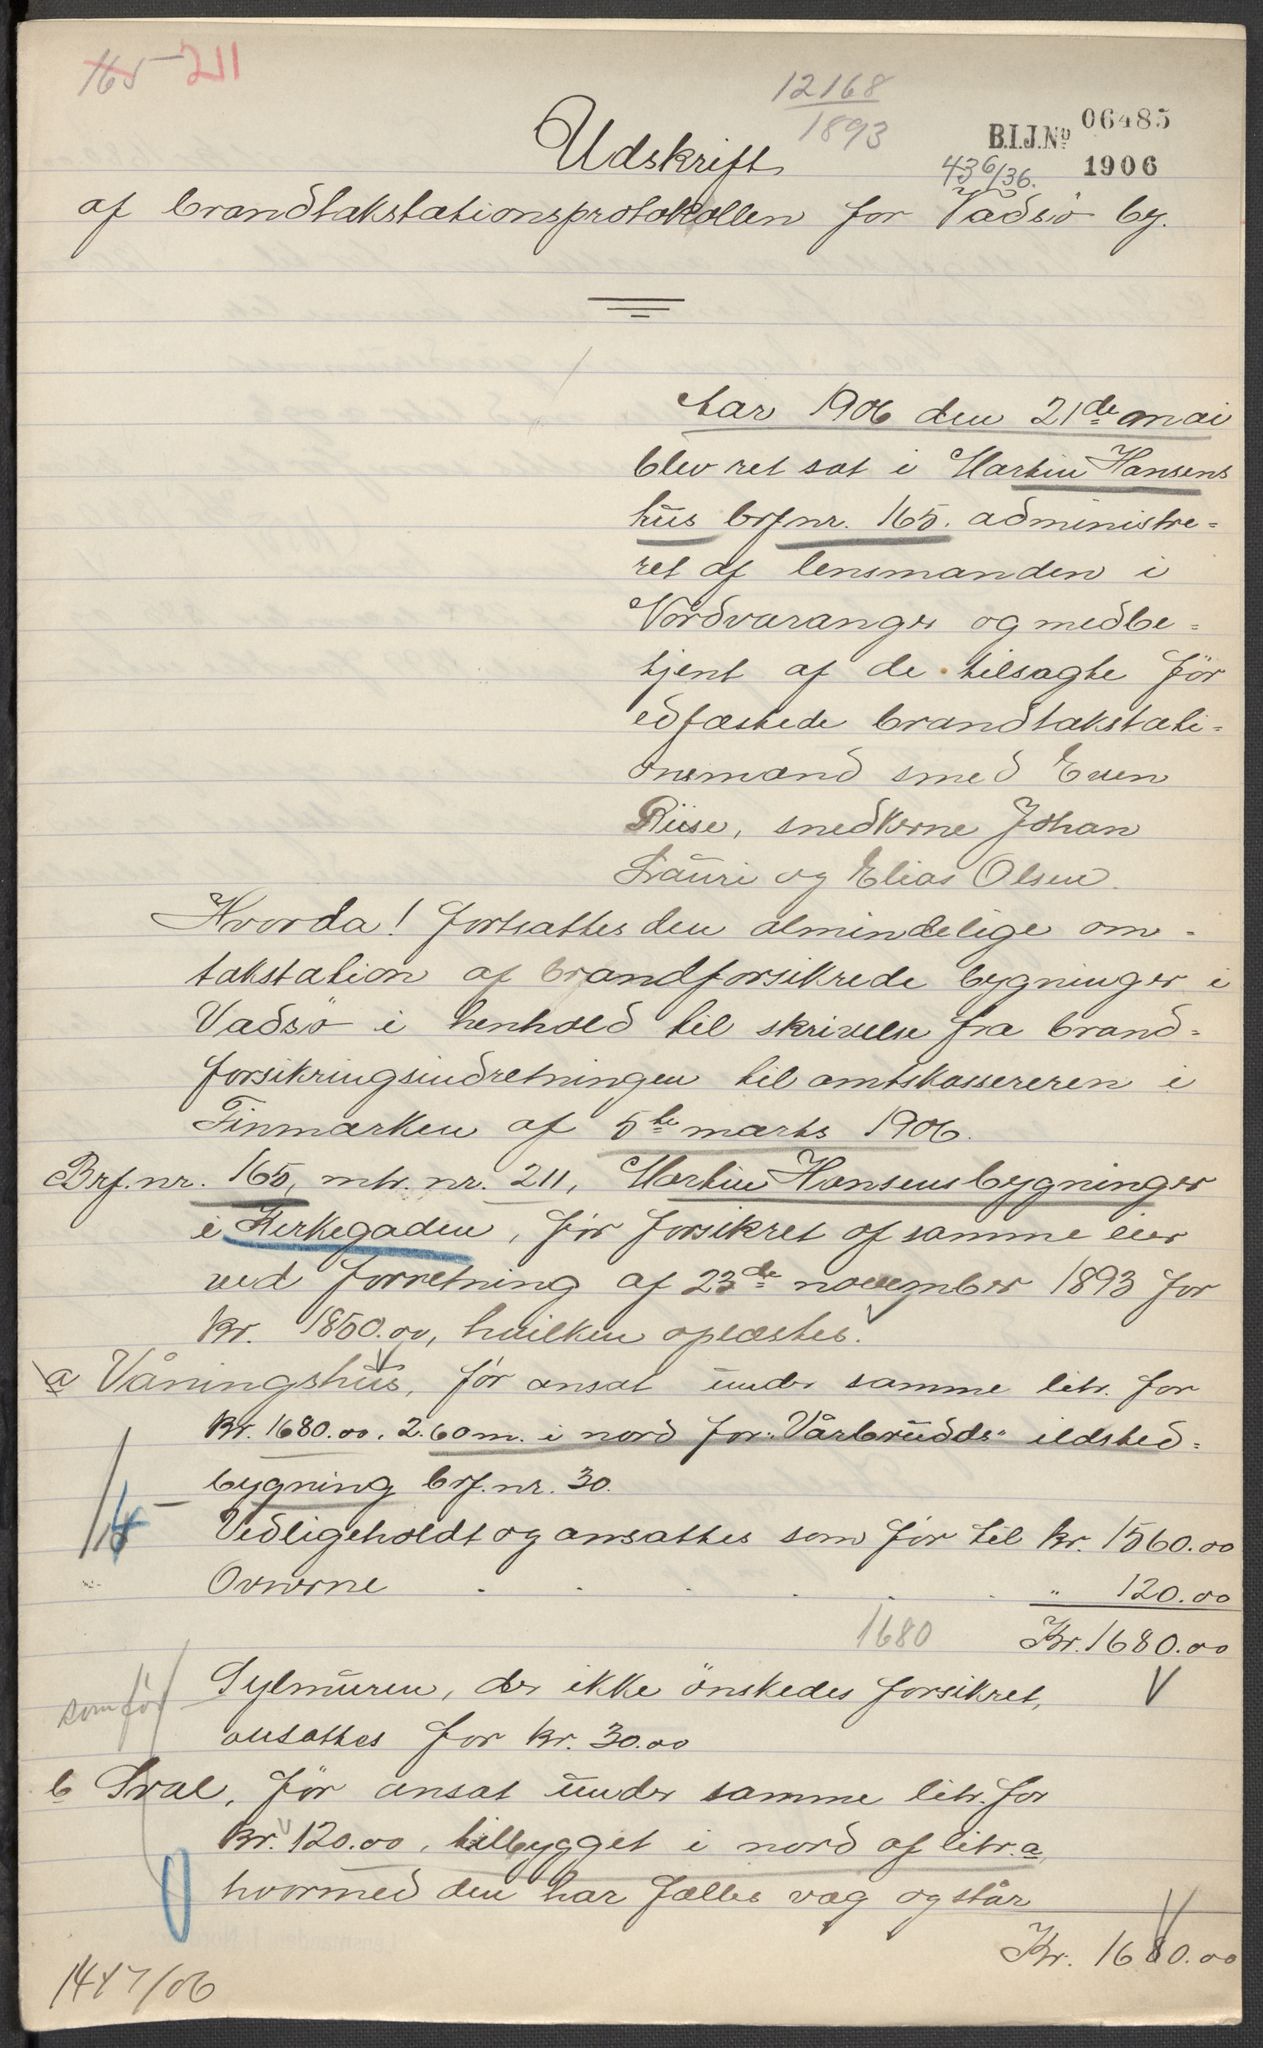 165 - 211
12168
1893
B.I.J.No 06485
1906
436/36.
Udskrift
af brandtakstationsprotokollen for Vadsö by.
Aar 1906 den 21de mai
blev ret sat i Martin Hansens
hus brf.nr. 165. administre-
ret af lensmanden i
Nordvaranger og medbe-
tjent af de tilsagte før
edfæstede brandtakstati-
onsmænd smed Even
Riise, snedkerne Johan
Lauri og Elias Olsen.
Hvorda! fortsattes den almindelige om-
takstation af brandforsikrede bygninger i
Vadsö i henhold til skrivelse fra brand-
forsikringsindretningen til amtskassereren i
Finmarken af 5te marts 1906.
Brf.nr. 165, mtr. nr. 211, Martin Hansens bygninger
i Kirkegaden, før forsikret af samme eier
ved forretning af 23de november 1893 for
kr. 1850.00, hvilken oplæstes.
a Våningshus, før ansat under samme litr. for
kr. 1680.00. 2.60 m. i nord for "Vårbrudds" ildsted-
bygning brf. nr. 30.
Vedligeholdt og ansattes som før til kr. 1560.00
Ovnerne . . . . . " 120.00
1680 Kr. 1680.00
som før
Sylmuren, der ikke ønskedes forsikret,
ansattes for kr. 30.00
b Sval, før ansat under samme litr. for
kr. 120.00, tilbygget i nord af litr. a,
hvormed den har fælles væg og står
Kr. 1680.00
1447/06